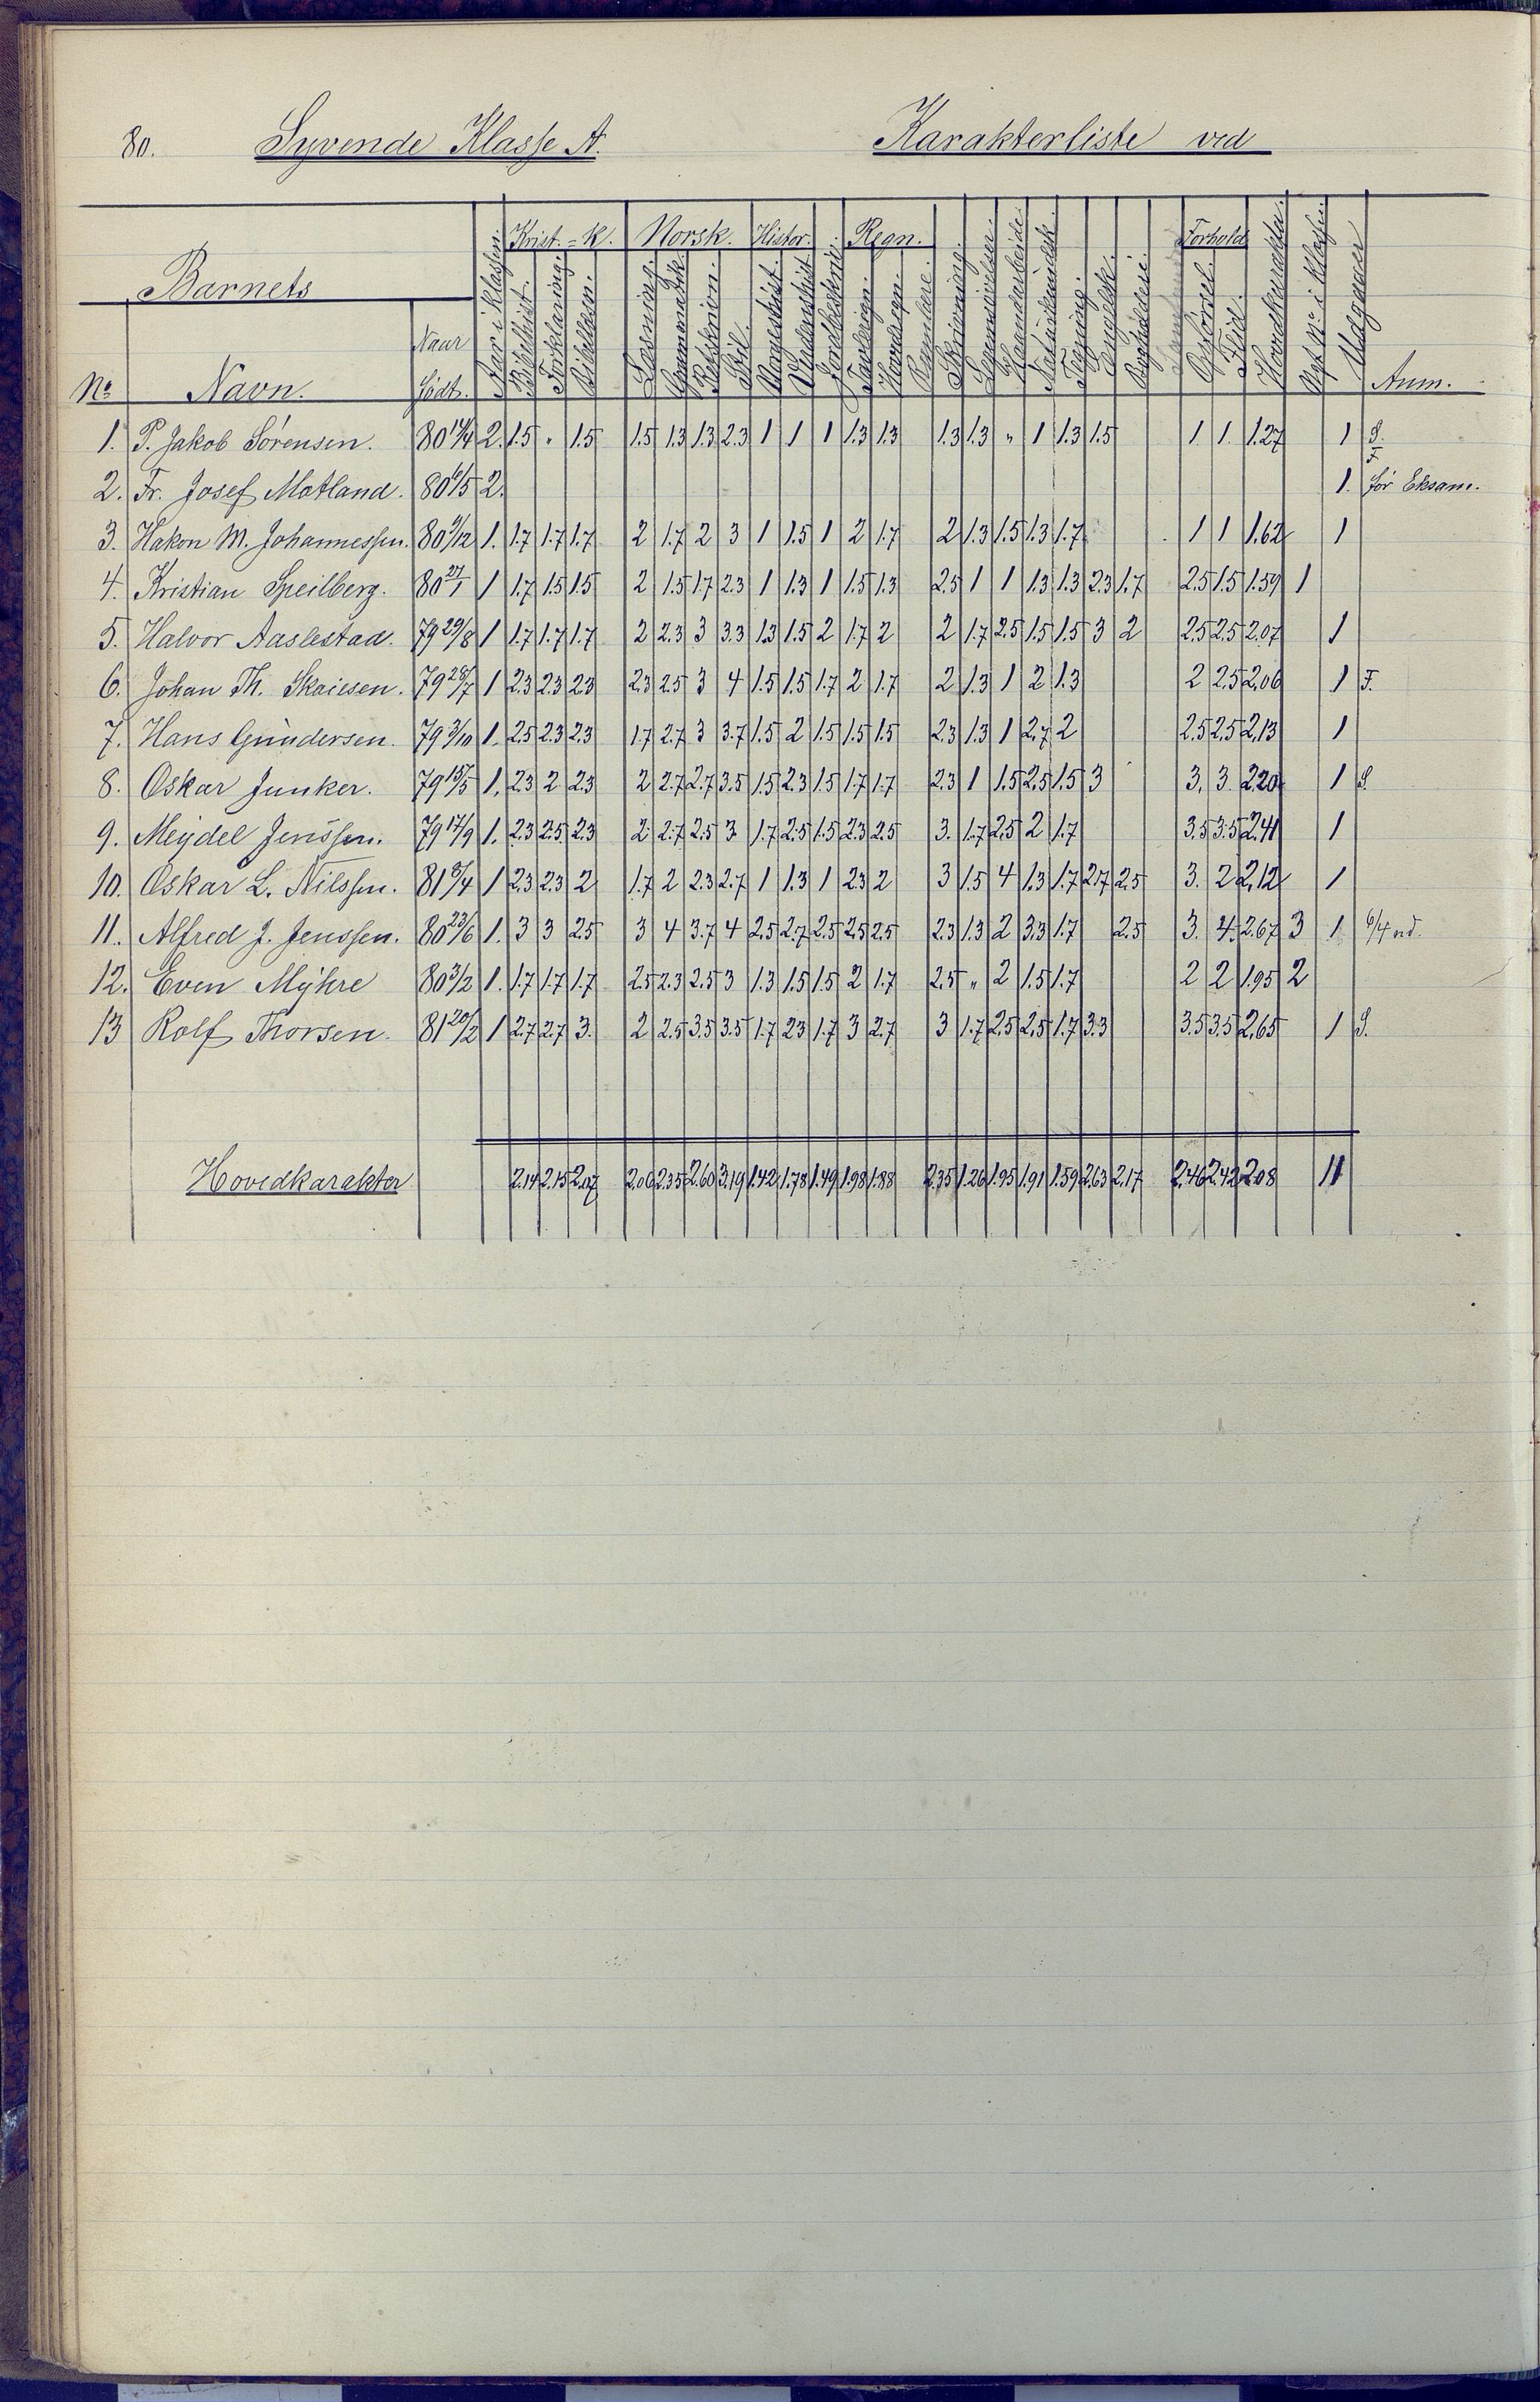 80. Syvende Klasse A. Karakterliste ved
Krist.-k. Norsk. Histor. Regn. Forhold
Barnets
No Navn. Naar födt. Aar i klassen. Bibelhist. Forklaring. Bibellæsn. Læsning. Grammatik. Retskrivn. Stil. Norgeshist. Verdenshist. Jordbeskriv. Tavleregn. Hovedregn. Rumlære. Skrivning. Legemsövelser. Haandarbeide. Naturkundsk. Tegning. Engelsk. Opförsel. Flid. Hovedkarakter. Nyt No i klassen. Udgaaet Anm.
1. P. Jakob Sörensen. 80 14/4 2. 1.5 " 1.5 1.5 1.3 1.3 2.3 1 1 1 1.3 1.3 1.3 1.3 " 1 1.3 1.5 1 1. 1.27 1 S. F.
2. Fr. Josef Motland. 80 6/5 2. 1. för Eksam.
3. Hakon M. Johannessen. 80 9/12 1. 1.7 1.7 1.7 2 1.7 2 3 1 1.5 1 2 1.7 2 1.3 1.5 1.3 1.7 1 1 1.62 1
4. Kristian Speilberg. 80 27/1 1 1.7 1.5 1.5 2 1.5 1.7 2.3 1 1.3 1 1.5 1.3 2.5 1 1 1.3 1.3 2.3 1.7 2.5 1.5 1.59 1
5. Halvor Aaslestad. 79 29/8 1 1.7 1.7 1.7 2 2.3 3 3.3 1.3 1.5 2 1.7 2 2 1.7 2.5 1.5 1.5 3 2 2.5 2.5 2.07 1
6. Johan Th. Skaiesen. 79 28/7 1 2.3 2.3 2.3 2.3 2.5 3 4 1.5 1.5 1.7 2 1.7 2 1.3 1 2 1.3 2 2.5 2.06 1 F.
7. Hans Gundersen. 79 3/10 1. 2.5 2.3 2.3 1.7 2.7 3 3.7 1.5 2 1.5 1.5 1.5 2.3 1.3 1 2.7 2 2.5 2.5 2.13 1
8. Oskar Junker. 79 15/5 1. 2.3 2 2.3 2 2.7 2.7 3.5 1.5 2.3 1.5 1.7 1.7 2.3 1 1.5 2.5 1.5 3 3. 3. 2.20 1 S.
9. Meydel Jenssen. 79 17/9 1. 2.3 2.5 2.3 2 2.7 2.5 3 1.7 2.5 1.5 2.3 2.5 3. 1.7 2.5 2 1.7 3.5 3.5 2.41 1
10. Oskar L. Nilssen. 81 8/4 1 2.3 2.3 2 1.7 2 2.3 2.7 1 1.3 1 2.3 2 3 1.5 4 1.3 1.7 2.7 2.5 3. 2 2.12 1
11. Alfred J. Jenssen. 80 23/6 1. 3 3 2.5 3 4 3.7 4 2.5 2.7 2.5 2.5 2.5 2.3 1.3 2 3.3 1.7 2.5 3. 4. 2.67 3 1. 6/4 ud.
12. Even Myhre 80 3/2 1. 1.7 1.7 1.7 2.5 2.3 2.5 3 1.3 1.5 1.5 2 1.7 2.5 " 2 1.5 1.7 2 2 1.95 2
13 Rolf Thorsen. 81 20/2 1 2.7 2.7 3. 2 2.5 3.5 3.5 1.7 2.3 1.7 3 2.7 3 1.7 2.5 2.5 1.7 3.3 3.5 3.5 2.65 1 S.
Hovedkarakter 2.14 2.15 2.07 2.06 2.35 2.60 3.19 1.42 1.78 1.49 1.98 1.88 2.35 1.26 1.95 1.91 1.59 2.63 2.17 2.46 2.42 2.08 11